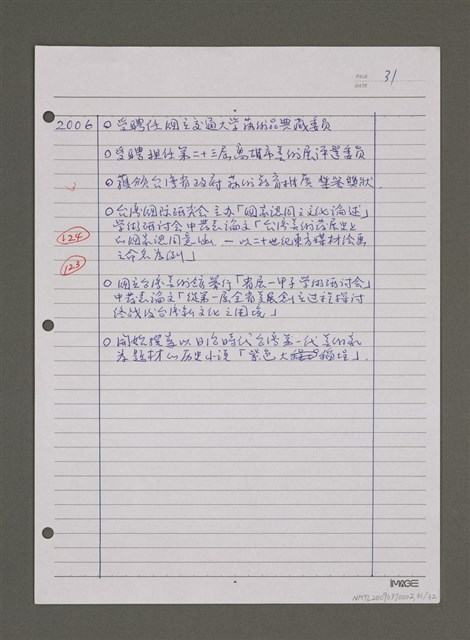 PAGE 31
DATE
2006 ○受聘任國立交通大學藝術品典藏委員
○受聘担任第二十三屆高雄市美術展評選委員
○獲頒台灣省政府 藝術教育推展 獎
○台灣國際研究會主办「國家認同之文化論述」
學術研討会中發表論文「台灣美術發展史上
的國家認同意涵 — 以二十世紀東方媒材繪畫
之命名為例」
124
123
○國立台灣美術館舉行「省展一甲子學術研討会」
中發表論文「從第一屆全省美展創立过程探討
終战後台灣新文化之困境」
○開始撰寫以日治時代台灣第一代美術家
為題材的历史小說「紫色大稻埕」.
IMAGE
NMTL20090370002,31/32